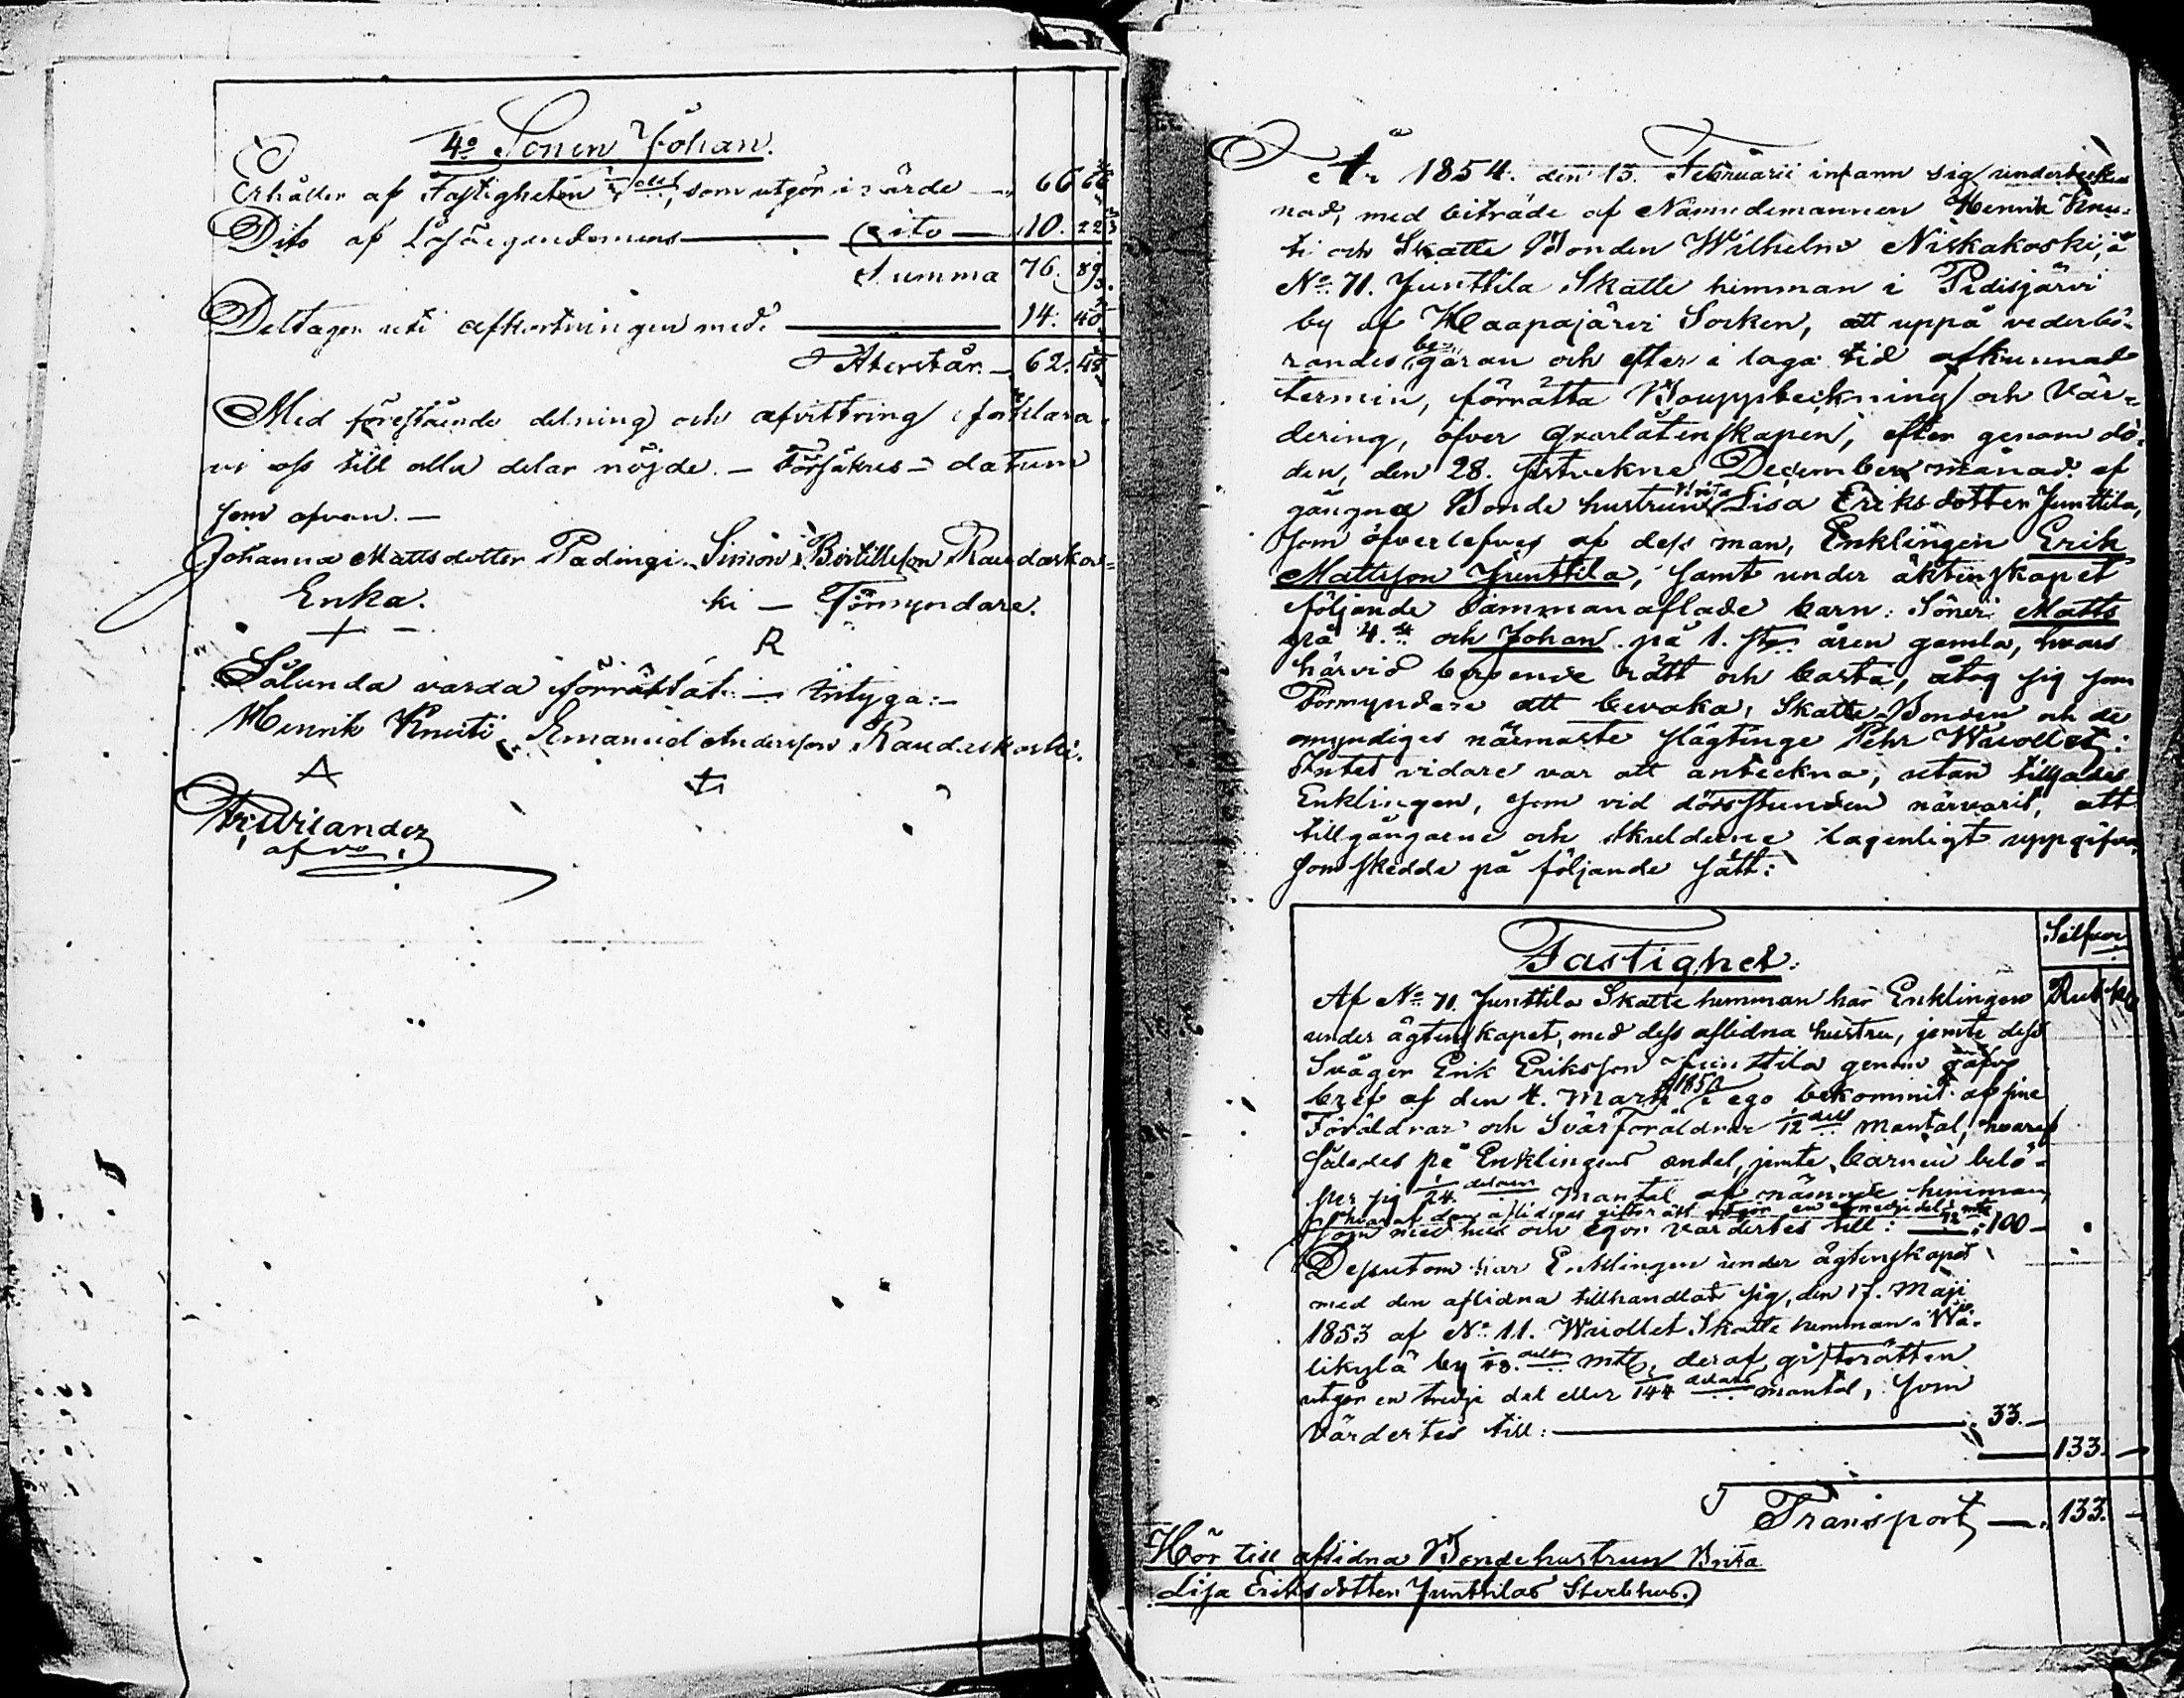 4:o Sonen Johan.
Erhåller af Fastigheten del, som utgör i värde — 66 66
Dito af Lösäegendomens — dito — 10. 22
Summa 76. 89.
Deltager uti afkortningen med: — 14. 40
Återstår. — 62. 48
Med föreståinde delning och afvittring förklara
vi oss till alla delar nöjde. — Försäkres — datum
som ofvan. —
Johanna Mattsdotter Padingi. Simon Bertillsson Raudaskos=
Enka. ki — Förmyndare.
R
Sålunda varda förrättat: — Intyga: —
Henrik Knuti. Emanuel Andersson Raudaskoski.
År 1854. den 15. Februarii infann sig underteck
nad, med biträde af Nämndemannen Henrik Knu=
ti och Skatte Bonden Wilhelm Niskakoski, å
N:o 71. Junttila Skatte himman i Pidisjärvi
by af Haapajärvi Socken, att uppå vederbö-
randes begäran och efter i laga tid afkunnad
termin, förrätta Bouppteckning och Vär=
dering, öfver Qvarlåtenskapen, efter genom dö-
den, den 28. sistvekne December månad af
gångna Bonde hustrun Brita Lisa Eriksdotter Junttila,
som öfverlefves af dess man, Enklingen Erik
Mattsson Junttila, samt under äktenskapet
följande sammanaflade barn: Söner Matts
på 4. och Johan på 1. åren gamla, hvars
härvid beroende rätt och basta, åtog sig som
Förmyndare att bevaka, Skatte Bonden och de
omyndiges närmaste slägtinge Pehr Wuollet;
Intet vidare var att anteckna, utan tillsades
Enklingen, som vid dödsstunden närvarit, att
tillgångarne och skulderne lagenligt uppgifva,
som skedde på följande sätt:
Silfver
Fastighet.
Rub. Kop
Af N:o 71. Junttila Skatte himman har Enklingen
under ägtenskapet, med dess aflidna hustru, jemte dess
Svåger Erik Eriksson Junttila genom gåfvo
bref af den 4. Martii i ego bekommit af sine
Föräldrar och Svärföräldrar 1/12 dels Mantal, hvaraf
således på Enklingens andel, jemte barnen belö-
per sig 1/24. delsen Mantal af nämnde himman,
hvaraf den aflidnas giftorätt utgör en tredjedel mtl
som med hus och egor värdertes till: — 100 —
Dessutom har Enklingen under ägtenskapet
med den aflidna tillhandlat sig, den 17. Maji
1853 af N:o 11. Wuollet Skatte himman i Wä-
likylä by 1/48. dels mtl, deraf giftorätten
utgör en tredje del eller 1/144 delans mantal, som
Värdertes till: — 33. —
133. —
Transport — 133. —
Hör till aflidna Bondehustrun Brita
Lisa Eriksdotter Junttilas Sterbhus.)